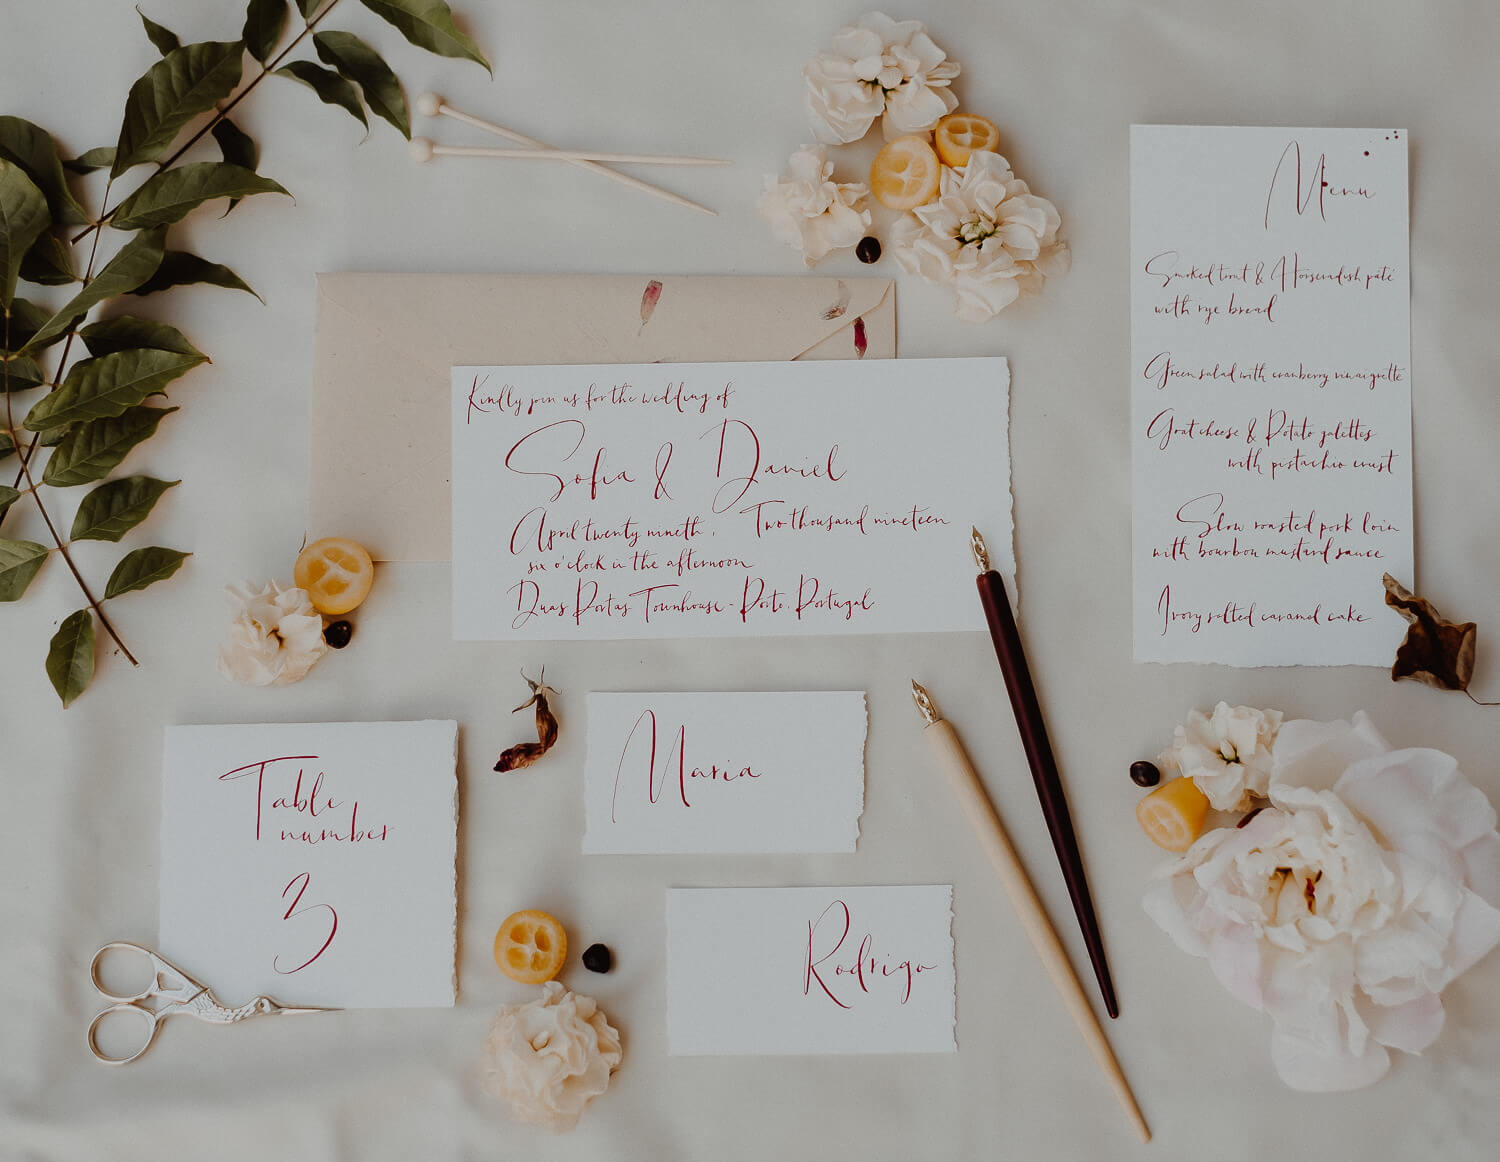 Kindly join us for the wedding of
Sofia & Daniel
April twenty nineth, Two thousand nineteen
six o'clock in the afternoon
Duas Portas Townhouse - Porto, Portugal
Menu
Smoked trout & Horseradish paté
with rye bread
Green salad with cranberry vinaigrette
Goat cheese & Potato galettes
with pistachio crust
Slow roasted pork loin
with bourbon mustard sauce
Ivory salted caramel cake
Table
number
3
Maria
Rodrigo